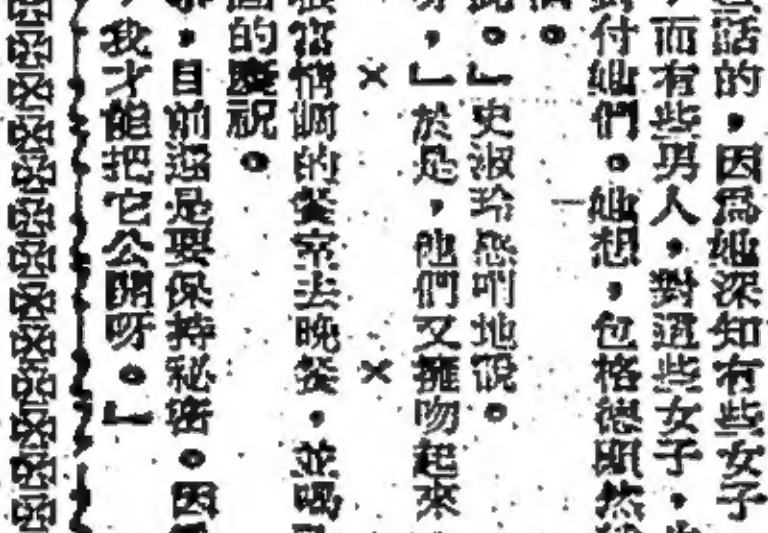 話的，因為她深知有些女子
，而有些男人，對這些女子，
付她們。她想，包格德顯然
。
。』史淑玲懇切地說。
，』於是，他們又擁吻起來
× ×
情調的餐室去晚餐，並喝
的慶祝。
，目前還是要保持秘密。因
，我才能把它公開呀。』